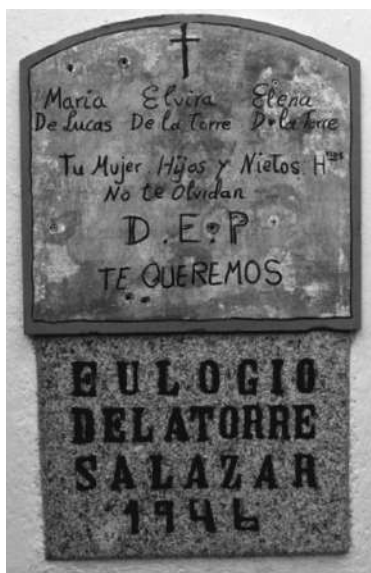 Maria Elvira Elena
De Lucas De la Torre De la Torre
Tu Mujer Hijos y Nietos. Hnos
No te Olvidan
D.E.P
TE QUEREMOS
EULOGIO
DELATORRE
SALAZAR
1946